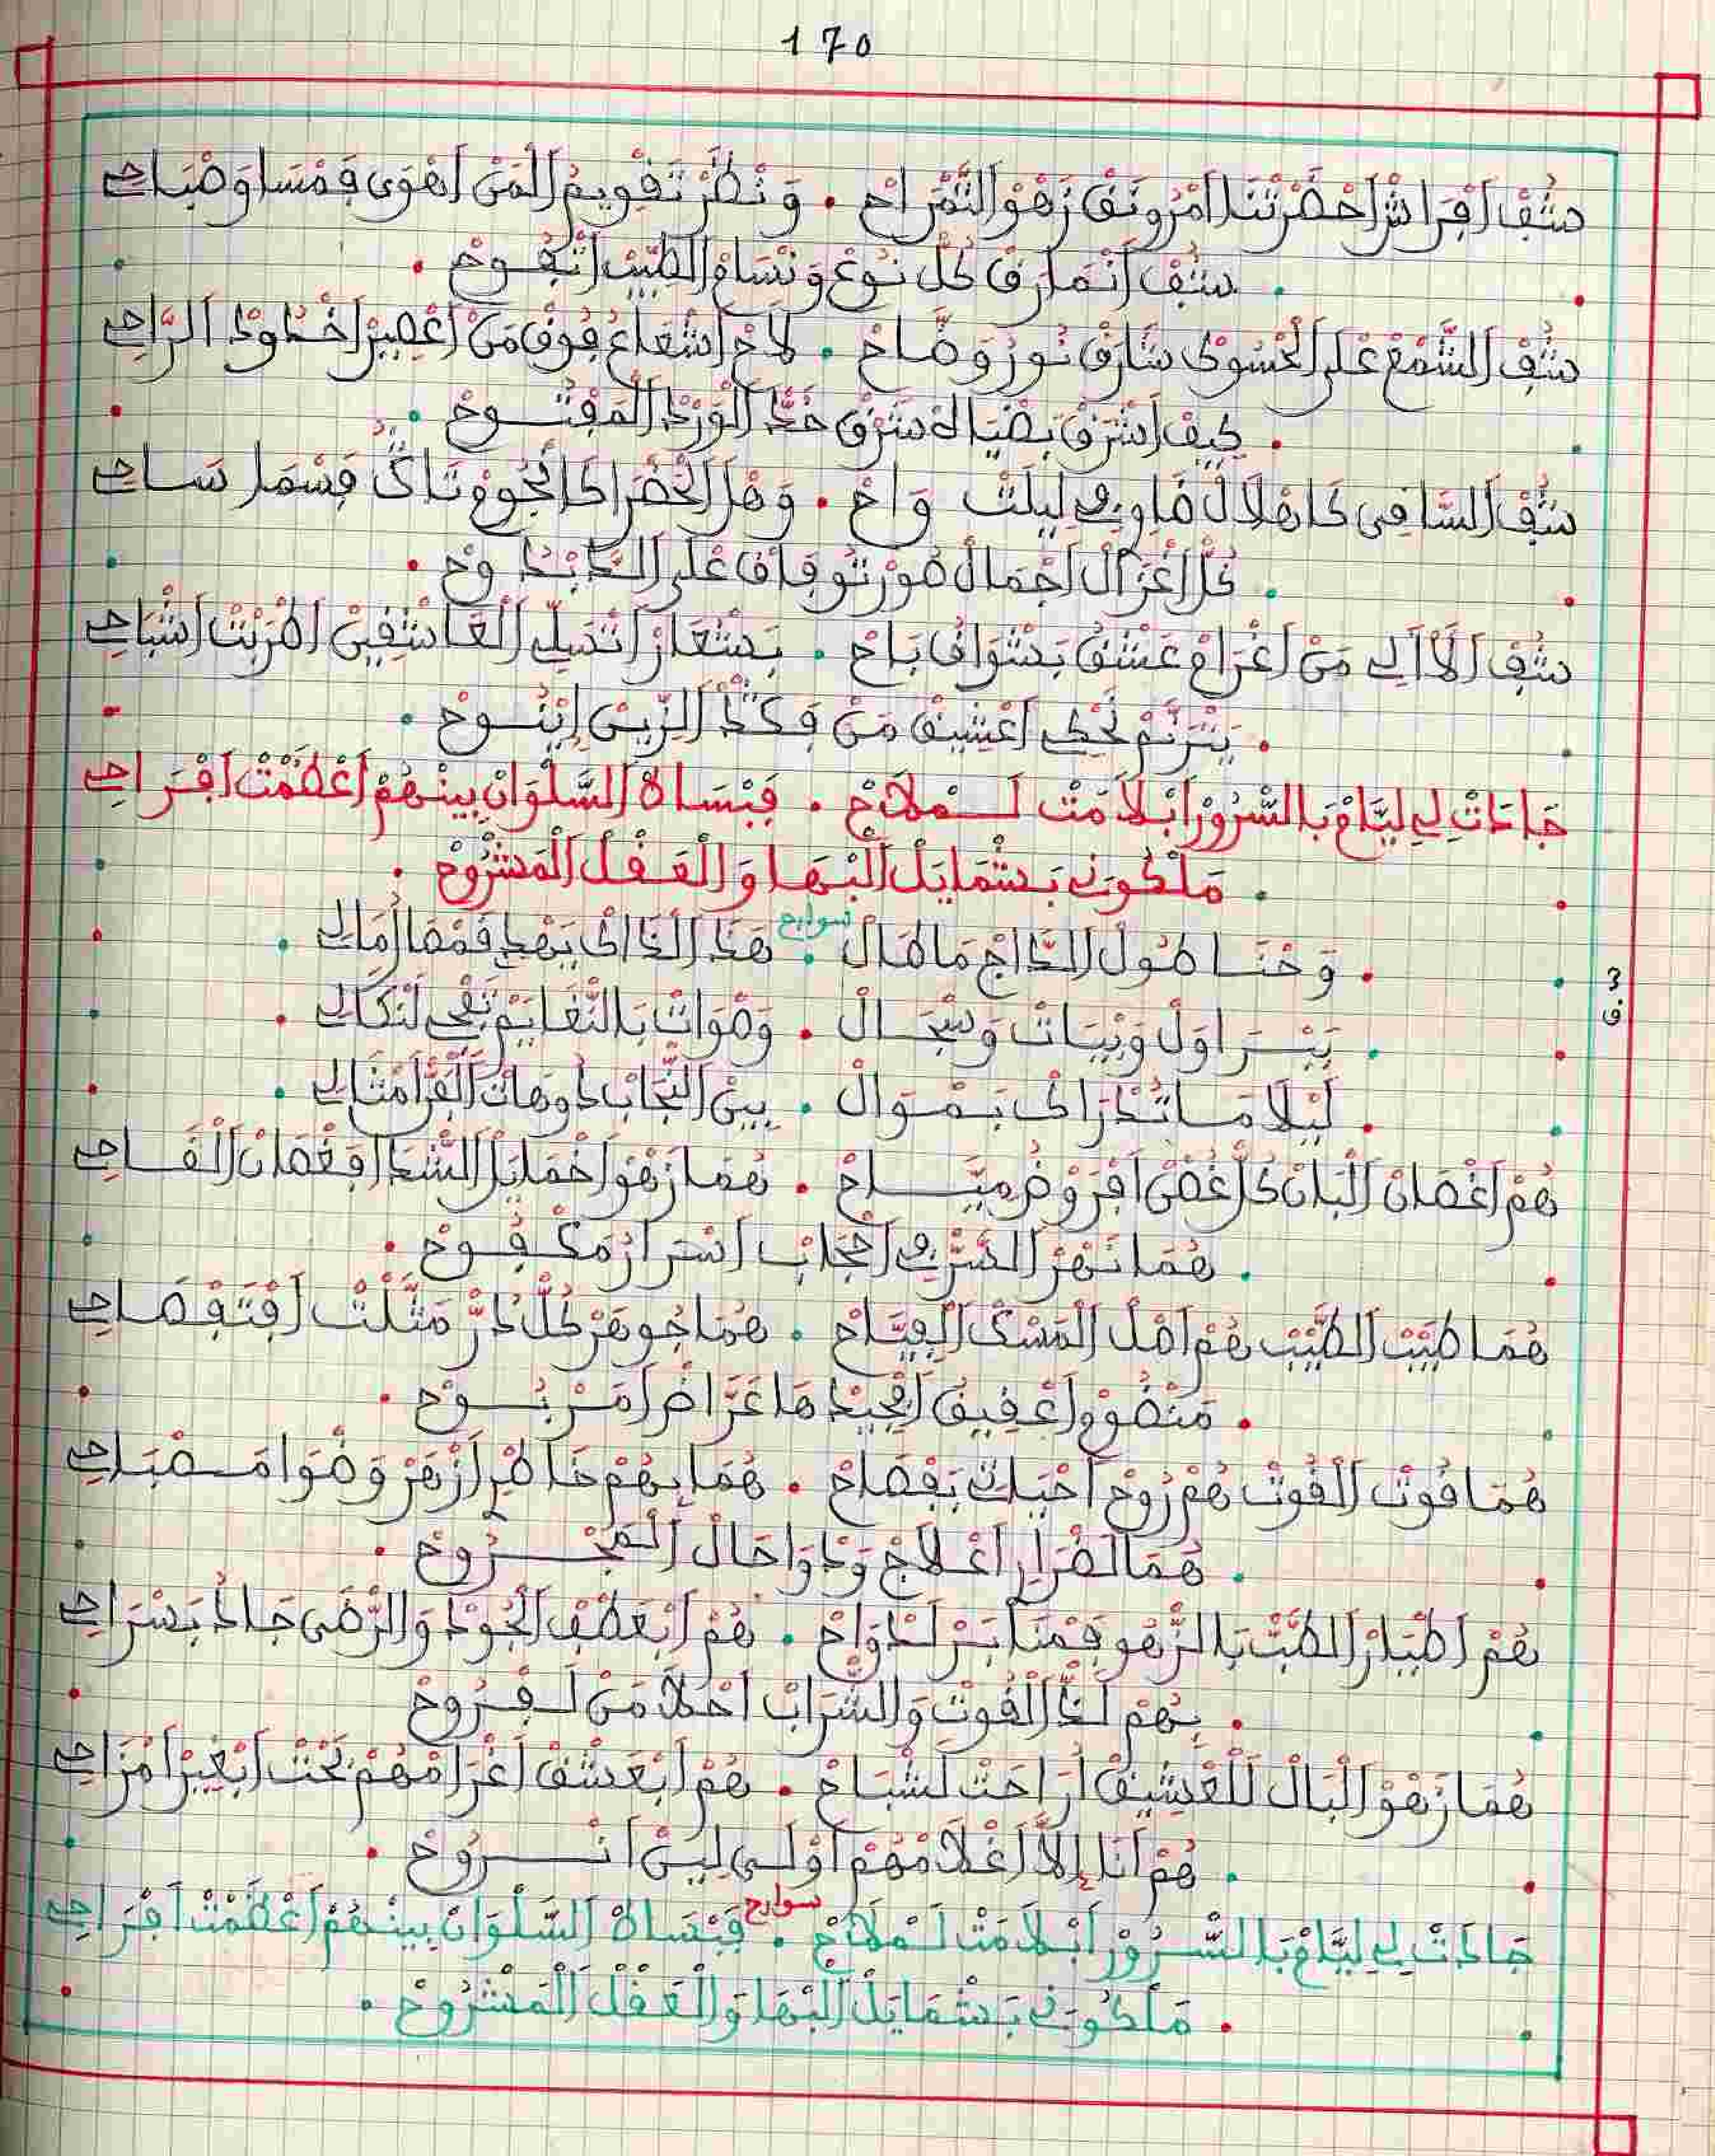 170
شُفْ اَفْرَاشْ اَحْضَرْتْنَا اَمْرُونَقْ زَهْوْ التَّمْرَاحْ . وَنْظَرْ تَقْوِيمْ اَلْمَنْ اَهْوَى فَمْسَا وَصْبَاحِي
. شُفْ اَنْمَارَقْ كُلْ نُوعْ وَنْسَامْ الطِّيبْ اتْفُوحْ .
شُفْ الشَّمْعْ عْلَى الْحْسُوكْ شَارَقْ نُورُ وَضَّاحْ . لاَحْ اَشْعَاعُ فُوقْ مَنْ اَعْصِيرْ اَخْدُودْ الرَّاحِ
. كِيفْ اَشْرَقْ بَضْيَاهْ شَرْقْ خَدّْ الْوَرْدْ الْمَفْتُوحْ .
شُفْ السَّاقِي كَاهْلاَلْ ضَاوِي فِي لِيلَتْ وَاحْ . وَهْلْ الْخَضْرَا كَانْجُومْ تَاكْ فَسْمَا سَاحِي
. كُلْ اَغْزَالْ اَجْمَالْ صُورْتُو فَاقْ عْلَى الْبْدُوحْ .
شُفْ اَلاَلِي مَنْ اَغْرَامْ عَشْقُ بَشْوَاقُ بَاحْ . بَشْعَارْ اَتْسَلِّي الْعَاشْقِينْ اَطْرَبْتْ اَشْبَاحِي
. يَتْرَنَّمْ تَحْكِي اَعْشِيقْ مَنْ فَكْدْ الزِّينْ اِيْنُوحْ .
جَادَتْ لِي لِيَّامْ بَالسُّرُورْ اَبْلاَمَتْ لَمْلاَحْ . فَبْسَاطْ السَّلْوَانْ بِينْهُمْ اَعْظَمْتْ اَفْرَاحِي
. مَلْكُونِي بَشْمَايَلْ الْبْهَا وَالْعَقْلْ الْمَشْرُوحْ .
سوارح
. وَحْنَا طُولْ الدَّاجْ مَاطَالْ . هَدَا الْدَاكْ يَهْدِي فَمْقَامُ مَالِي
3
ف
. بَيْتْ اَوَّلْ وَبْيَاتْ وَسْجَالْ . وَصْوَاتْ بَالنّْغَايَمْ تَنْفِي لَنْكَالِي
. لَيْلاَ مَا تَنْدْرَاكْ بَمْوَالْ . بِينْ النّْجَابْ دُوهَاتْ الْفَنْ اَمْثَالِي
هُمْ اَغْصَانْ الْبَانْ كُلْ غُصْنْ اَفْرَوْضُ مِيَّاحْ . هُمَا زَهْوْ اَخْمَايَلْ الشّْدَا فَغْصَانْ الْقَاحِي
. هُمَا نَهْرْ السَّرّْ فِي اَحْجَابْ اَسْرَارُ مَكْفُوحْ .
هُمَا طِيبْ الطِّيبْ هُمْ اَصْلْ الْمَسْكْ الْفِيَّاحْ . هُمَا جُوهَرْ كُلْ دُرّْ مَثَّلْتْ اَفْتَفْصَاحِي
. مَنْضُومْ اَعْقِيقْ اَلْجِيدْ هَا غَرَّاضْ اَمَرْبُوحْ .
هُمَا قُوتْ الْقُوتْ هُمْ رُوحْ اَحْيَاتْ بَفْصَاحْ . هُمَا بِهُمْ خَاطْرِي اَزْهَرْ وَضْوَا مَصْبَاحِي
. هُمَا لَضْرَارِي اَعْلاَجْ وَدْوَا حَالْ الْمَجْرُوحْ .
هُمْ اَطْيَارْ الطَّبّْ بَالزّْهُو فَمْنَابَرْ لَدْوَاحْ . هُمْ اَبْعَطْفْ الْجُودْ وَالرّْضَى جَادُ بَسْرَاحِي
. بِهُمْ لَدّْ الْقُوتْ وَالشّْرَابْ اَحْلاَ مَنْ لَقْرُوحْ .
هُمَا زَهْوْ الْبَالْ لَلْعْشِيقْ اُرَاحَتْ لَشْبَاحْ . هُمْ اَبْعَشْقْ اَغْرَامْهُمْ نَحْتْ اَبْغِيرْ اَمْزَاحِي
. هُمْ اَنَا اِلاَّ اَغْلاَمْهُمْ اَوْلَى لِينْ اَنْرُوحْ .
سوارح
جَادَتْ لِي لِيَّامْ بَالسُّرُورْ اَبْلاَمَتْ لَمْلاَحْ . فَبْسَاطْ السَّلْوَانْ بِينْهُمْ اَعْظَمْتْ اَفْرَاحِي
. مَلْكُونِي بَشْمَايَلْ الْبْهَا وَالْعَقْلْ الْمَشْرُوحْ .